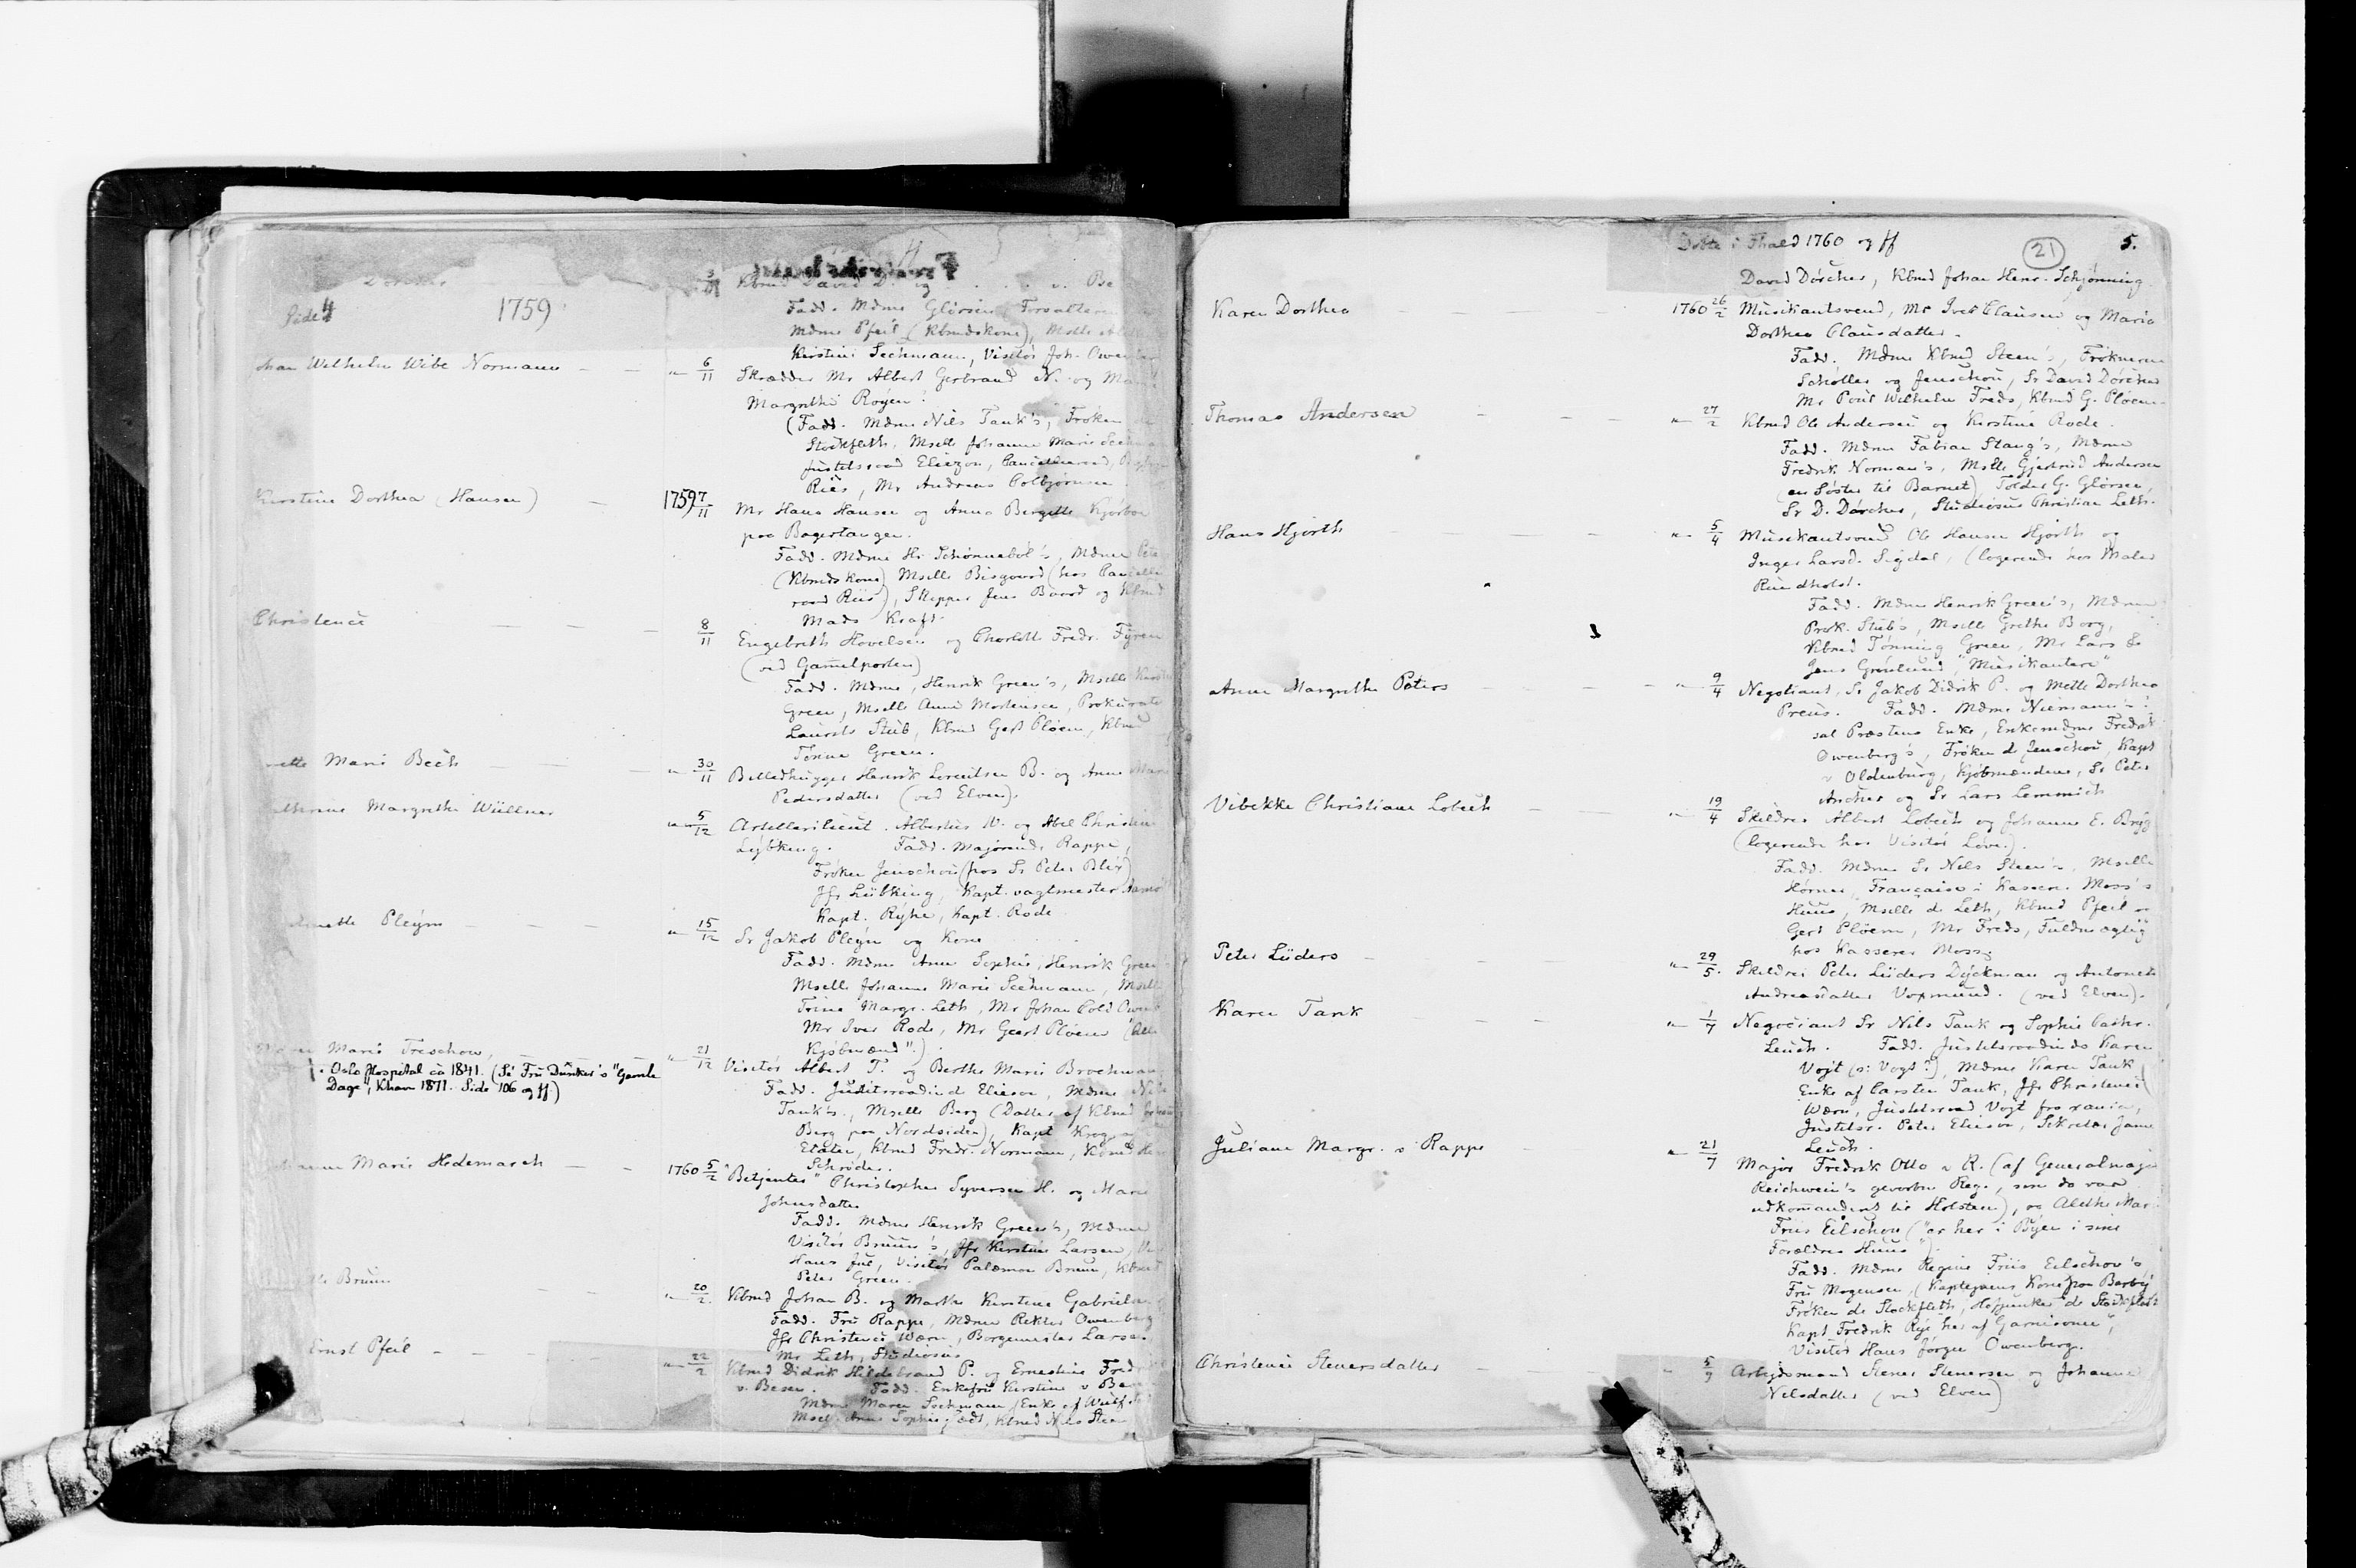 Side 4
1759
Dorthea
3/11 Kbmd David D. og . . . . v. Be
Fadd. Mdme Glörsen, Forvalteren
Mdme Pfeil (Kbmdskone), Mslle
Kirstine Seehmann, Visitör Joh. Owenberg
ohan Wilhelm Wibe Normann — — „— 6/11 Skrædder Mr Albert Gerbrand N. og Marie
Margrethe Röyen.
(Fadd. Mdme Nils Tank's, Fröken de
Stockfleth, Mselle Johanne Marie Seehman
Justitsraad Eliezon, Cancelliraad,
Riis, Mr Andreas Colbjörnsen
Kirstine Dorthea (Hansen) — 1759 7/11 Mr Hans Hansen og Anna Bergitte Kjörboe
paa Bagertangen.
Fadd. Mdme Hr Schönneböl's, Mdme
(Kbmdskone) Mselle Bisgaard (hos Cancelli
raad Riis), Skipper Jens Baard og Kbmd
Mads Kraft.
Christence — — — 8/11 Engebreth Hovelsen og Charlotte Fredr. Fyren
(ved Gamelporten)
Fadd. Mdme, Henrik Green's, Mselle Kirstine
Green, Mselle Anne Mortensen, Prokurator
Laurits Stub, Kbmd Gert Plöen, Kbmd
Tönne Green.
nette Marie Bech — — — „— 30/11 Billedhugger Henrik Lorentsen B. og Anne Marie
Pedersdatter (ved Elven).
athrine Margrethe Wüllner — „— 5/12 Artellerilieut. Albertus W. og Abel Christine
Lybking. Fadd. Majorinde Rappe,
Fröken Jenschou (hos Sr Peter Blix)
Jfr Lübking, Kapt. vagtmester
Kapt. Ryhe, Kapt. Rode
nette Pleym — — — „— 15/12 Sr Jakob Pleym og Kone
Fadd. Mdme Anne Sophie, Henrik Green's
Mselle Johanne Marie Seehmann, Mselle
Trine Margr. Leth, Mr Johan Cold Owenb
Mr Iver Rode, Mr Geert Plöen (alle
Kjöbmænd").
Maren Marie Treschow, — — „— 21/12 Visitör Albert T. og Berthe Marie Brochmann
i Oslo Hospital ca 1841. (Se Fru Dunker's "Gamle
Dage", Khavn 1871. Side 106 og ff)
Fadd. Justitsraadinde Elieson, Mdme Nils
Tank's, Mselle Berg (Datter af Kbmd
Berg paa Nordsiden), Kapt Krog
Etater, Kbmd Fredr. Normann, Kbmd
Schröder.
anne Marie Hedemarch — — 1760 5/2 "Betjenter" Christopher Syversen H. og Maren
Johnsdatter
Fadd. Mdme Henrik Green's, Mdme
Visitör Bruun's, Jfr Kirstine Larsen,
Hans Jul, Visitör Palæmon Bruun, Kbmd
Peter Green.
Bruun — — „— 20/2 Kbmd Johan B. og Marthe Kirstine Gabrielsen
Fadd. Fru Rappe, Mdme Rektor Owenberg
Jfr Christence Wærn, Borgemester Larsen
Mr Leth, Studiosus
Ernst Pfeil — — — „— 22/2 Kbmd Didrik Hildebrand P. og Ernestine Fredr
v. Besen. Fadd. Enkefru Kirstine v Besen
Mdme Maren Seehmann (Enke af Wulf
Msel. Anne Sophie, Kbmd Nils Steen
Döbte i Fhald 1760 og ff 21 5.
David Dörcher, Kbmd Johan Henr. Schjönning.
Karen Dorthea — — — 1760 26/2 Musikantsvend, Mr Iver Clausen og Maria
Dorthea Clausdatter.
Fadd. Mdme Kbmd Steen's, Fröknerne
Schöller og Jenschou, Sr David Dörcher
Mr Poul Wilhelm Freds, Kbmd G. Plöen.
Thomas Andersen — — — „— 27/2 Kbmd Ole Andersen og Kirstine Rode.
Fadd. Mdme Fabian Stang's, Mdme
Fredrik Norman's, Mslle Gjertrud Andersen
(en Söster til Barnet), Tolder G. Glörsen,
Sr D. Dörcher, Studiosus Christian Leth.
Hans Hjorth — — — „— 5/4 Musikantsvend Ole Hansen Hjorth og
Inger Larsd. Sigdal, (logerende hos Maler
Rundholt.
Fadd. Mdme Henrik Green's, Mdme
Prok. Stub's, Mselle Grethe Borg,
Kbmd Tönning Green, Mr Lars &
Jens Grönlund "Musikantere"
Anne Margrethe Peters — — — „— 9/4 Negotiant, Sr Jakob Didrik P. og Mette Dorthea
Preus. Fadd. Mdme Niemann's:
sal Præstens Enke, Enkemdme Fredrik
Owenberg's, Fröken d Jenschou, Kapt
v Oldenburg, Kjöbmændene, Sr Peter
Ancher og Sr Lars Lemmich
Vibekke Christiane Lobech — — „— 19/4 Skildrer Albert Lobech og Johanne E. Bryg
(logerende hos Visitör Löve).
Fadd. Mdme Sr Nils Steen's, Mselle
Hörner, "Française i Kasser. Moss's
Huus," Mselle de Leth, Kbmd Pfeil og
Gert Plöen, Mr Freds, "Fuldmægtig"
hos Kasserer Moss
Peter Lüders — — — „— 29/5. Skildrer Peter Lüders Dyckman og Antonete
Andreasdatter Voxmund. (ved Elven).
Karen Tank — — — „— 1/7 Negociant Sr Nils Tank og Sophie Cathr.
Leuch. Fadd. Justitsraadinde Karen
Vojt (ɔ: Vogt?), Mdme Karen Tank,
Enke af Carsten Tank, Jfr Christence
Wærn, Justitsraad Vogt fra xania,
Justitsr. Peter Elieson, Sekretær Jame
Leuch.
Juliane Margr. v Rappe — — — „— 21/7 Major Fredrik Otto v R. (af Generalmajor
Reichwein's gevorbne Reg., som da var
udkommanderet til Holsten), og Alethe Mar:
Friis Eilschou ("er her i Byen i sine
Forældres Huus")
Fadd. Mdme Regine Friis Eilschov's,
Fru Mogensen, (Kaptejnens Kone paa Berby
Fröken de Stockfleth, Hofjunker de Stockfleth
Kapt Fredrik Rye her af Garnisonen",
Visitör Hans Jörgen Owenberg.
Christence Stenersdatter — — „ 5/9 Arbejdsmand Stener Stenersen og Johanne
Nelsdatter (ved Elven)